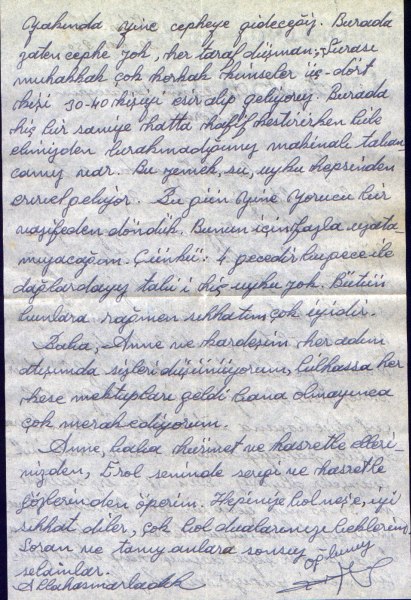 Yakında yine cepheye gideceğiz. Burada
zaten cephe yok, her taraf düşman. Şurası
muhakkak çok korkak kimseler üç-dört
kişi 30-40 kişiyi esir alıp geliyoruz. Burada
hiç bir saniye hatta hafif kestirirken bile
elimizden bırakmadığımız makinalı taban-
camız var. Bu yemek, su, uyku hepsinden
evvel geliyor. Bu gün yine yorucu bir
vazifeden döndük. Bunun için fazla uzata-
mıyacağım. Çünkü: 4 gecedir bu gece ile
dağlardayız tabii hiç uyku yok. Bütün
bunlara rağmen sıhhatim çok iyidir.
Baba, Anne ve kardeşim, her adım
atışımda sizleri düşünüyorum, bilhassa her
kese mektupları geldi bana olmayınca
çok merak ediyorum.
Anne, baba hürmet ve hasretle elleri-
nizden, Erol seninde sevgi ve hasretle
gözlerinden öperim. Hepinize bol neş'e, iyi
sıhhat diler, çok bol dualarınızı beklerim.
Soran ve tanıyanlara sonsuz
selamlar.
Allahasmarladık
Oğlunuz